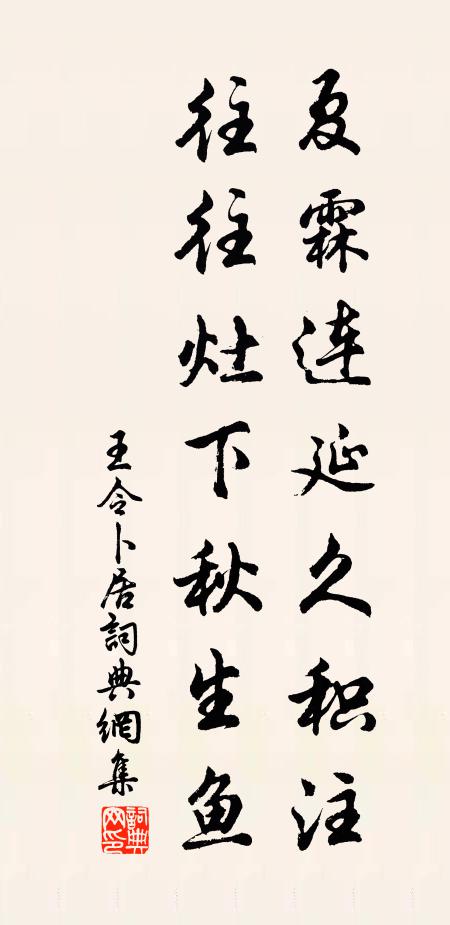 夏霖连延久积注
往往灶下秋生鱼
王令卜居詞典網集
詞典網印